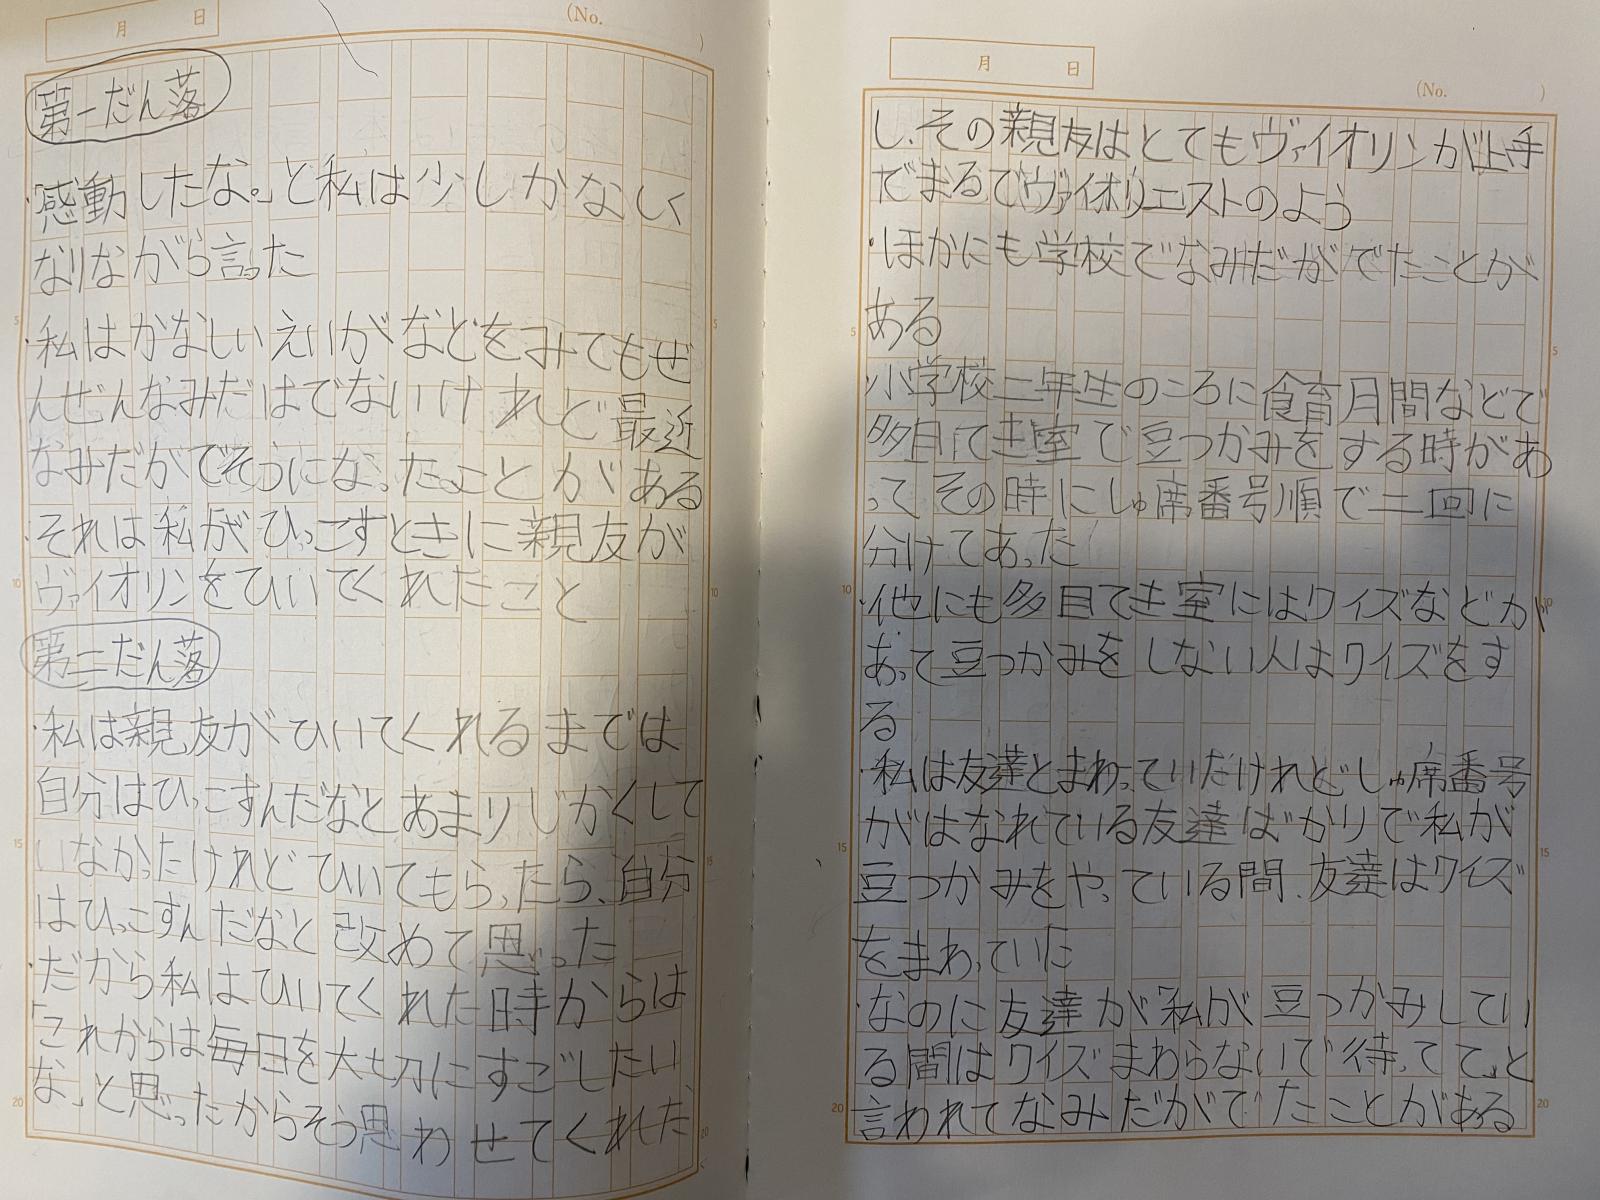 月 日
(No. )
第一だん落
・「感動したな。」と私は少しかなしく
なりながら言った
・私はかなしいえいがなどをみてもぜ
んぜんなみだはでないけれど最近
なみだがでそうになったことがある
・それは私がひっこすときに親友が
ヴァイオリンをひいてくれたこと
第二だん落
・私は親友がひいてくれるまでは
自分はひっこすんだなとあまりじかくして
いなかったけれどひいてもらったら、自分
はひっこすんだなと改めて思った
・だから私はひいてくれた時からは
「これからは毎日を大切にすごしたい
な」と思ったからそう思わせてくれた
5
10
15
20
5
10
15
20
月 日
(No. )
し、その親友はとてもヴァイオリンが上手
でまるでヴァイオリニストのよう
・ほかにも学校でなみだがでたことが
ある
・小学校二年生のころに食育月間などで
多目てき室で豆つかみをする時があ
って、その時にしゅ席番号順で二回に
分けてあった
・他にも多目てき室にはクイズなどが
あって豆つかみをしない人はクイズをす
る
・私は友達とまわっていたけれどしゅ席番号
がはなれている友達ばかりで私が
豆つかみをやっている間、友達はクイズ
をまわっていた
・なのに友達が「私が豆つかみしてい
る間はクイズまわらないで待ってて」と
言われてなみだがでたことがある
5
10
15
20
5
10
15
20